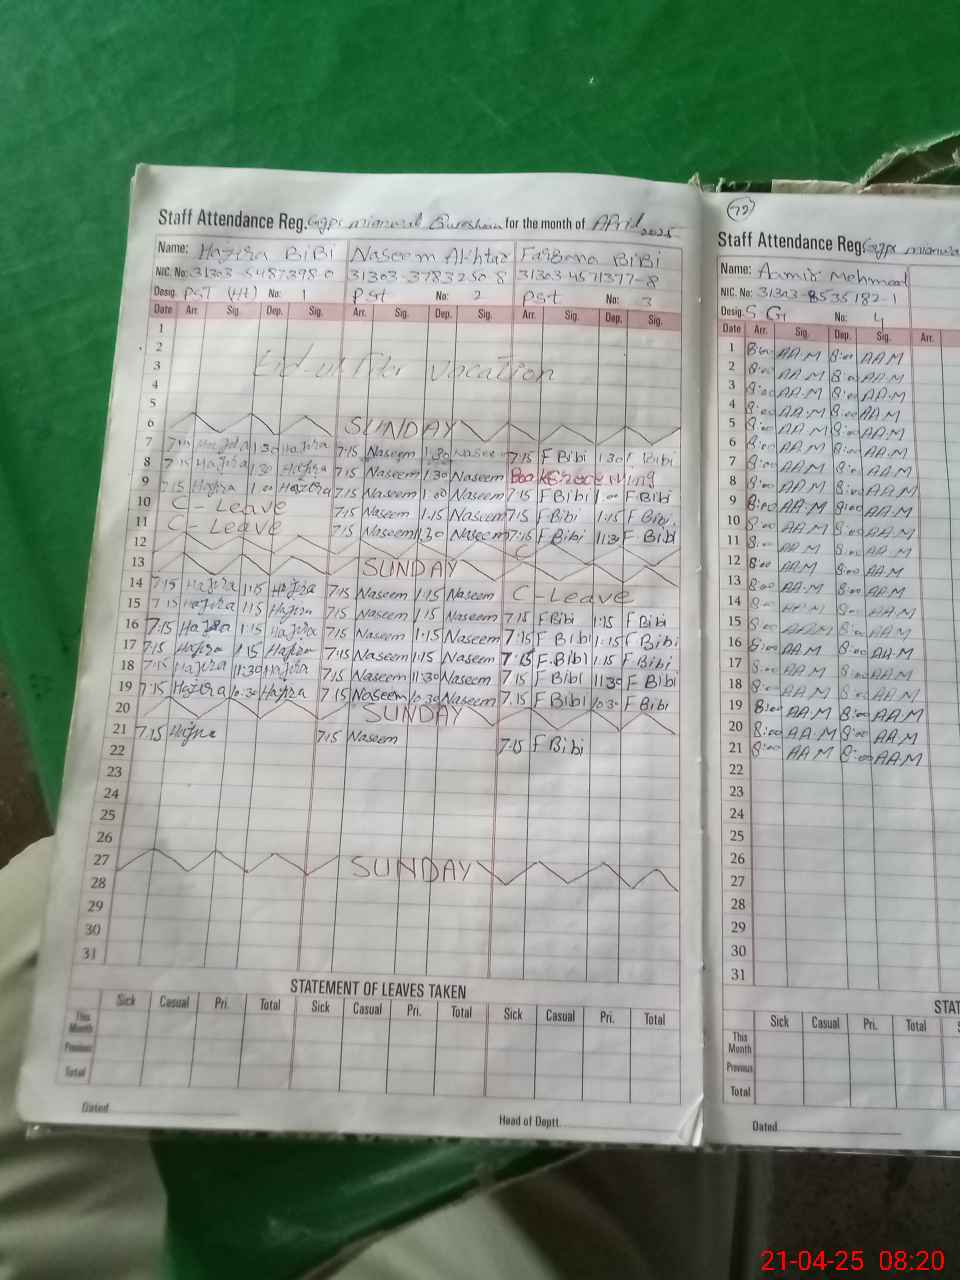 Staff Attendance Reg. Ggps mianwal Qureshan for the month of April 2025
Name: Hajira BiBi Naseem Akhtar Farzana BiBi
NIC. No: 31303-5487398-0 31303-3783250-8 31303-4571377-8
Desig. PST (Ht) No: 1 Pst No: 2 Pst No: 3
Date Arr. Sig. Dep. Sig. Arr. Sig. Dep. Sig. Arr. Sig. Dep. Sig.
1
2
3 Eid-ul fiter vacation
4
5
6 SUNDAY
7 7:15 Hajira 1:30 Hajira 7:15 Naseem 1:30 Naseem 7:15 F Bibi 1:30 F Bibi
8 7:15 Hajira 1:30 Hajira 7:15 Naseem 1:30 Naseem
9 7:15 Hajira 1:00 Hajira 7:15 Naseem 1:00 Naseem 7:15 F Bibi 1:00 F Bibi
10 C-Leave 7:15 Naseem 1:15 Naseem 7:15 F Bibi 1:15 F Bibi
11 C-Leave 7:15 Naseem 11:30 Naseem 7:15 F Bibi 11:30 F Bibi
12
13 SUNDAY
14 7:15 Hajira 1:15 Hajira 7:15 Naseem 1:15 Naseem C-Leave
15 7:15 Hajira 1:15 Hajira 7:15 Naseem 1:15 Naseem 7:15 F Bibi 1:15 F Bibi
16 7:15 Hajira 1:15 Hajira 7:15 Naseem 1:15 Naseem 7:15 F Bibi 1:15 F Bibi
17 7:15 Hajira 1:15 Hajira 7:15 Naseem 1:15 Naseem 7:15 F.Bibi 1:15 F Bibi
18 7:15 Hajira 11:30 Hajira 7:15 Naseem 11:30 Naseem 7:15 F Bibi 11:30 F Bibi
19 7:15 Hajira 10:30 Hajira 7:15 Naseem 10:30 Naseem 7:15 F Bibi 10:30 F Bibi
20 SUNDAY
21 7:15 Hajira 7:15 Naseem 7:15 F Bibi
22
23
24
25
26
27 SUNDAY
28
29
30
31
STATEMENT OF LEAVES TAKEN
Sick Casual Pri. Total Sick Casual Pri. Total Sick Casual Pri. Total
This Month
Previous
Total
Dated
Head of Deptt.
72
Staff Attendance Reg. Ggps mianwa
Name: Aamir Mehmood
NIC. No: 31303-8535182-1
Desig. S G No: 4
Date Arr. Sig. Dep. Sig. Arr.
1 8:00 AA.M 8:00 AA.M
2 8:00 AA.M 8:00 AA.M
3 8:00 AA.M 8:00 AA.M
4 8:00 AA.M 8:00 AA.M
5 8:00 AA.M 8:00 AA.M
6 8:00 AA.M 8:00 AA.M
7 8:00 AA.M 8:00 AA.M
8 8:00 AA.M 8:00 AA.M
9 8:00 AA.M 8:00 AA.M
10 8:00 AA.M 8:00 AA.M
11 8:00 AA.M 8:00 AA.M
12 8:00 AA.M 8:00 AA.M
13 8:00 AA.M 8:00 AA.M
14 8:00 AA.M 8:00 AA.M
15 8:00 AA.M 8:00 AA.M
16 8:00 AA.M 8:00 AA.M
17 8:00 AA.M 8:00 AA.M
18 8:00 AA.M 8:00 AA.M
19 8:00 AA.M 8:00 AA.M
20 8:00 AA.M 8:00 AA.M
21 8:00 AA.M 8:00 AA.M
22
23
24
25
26
27
28
29
30
31
STAT
Sick Casual Pri. Total S
This Month
Previous
Total
Dated
21-04-25 08:20